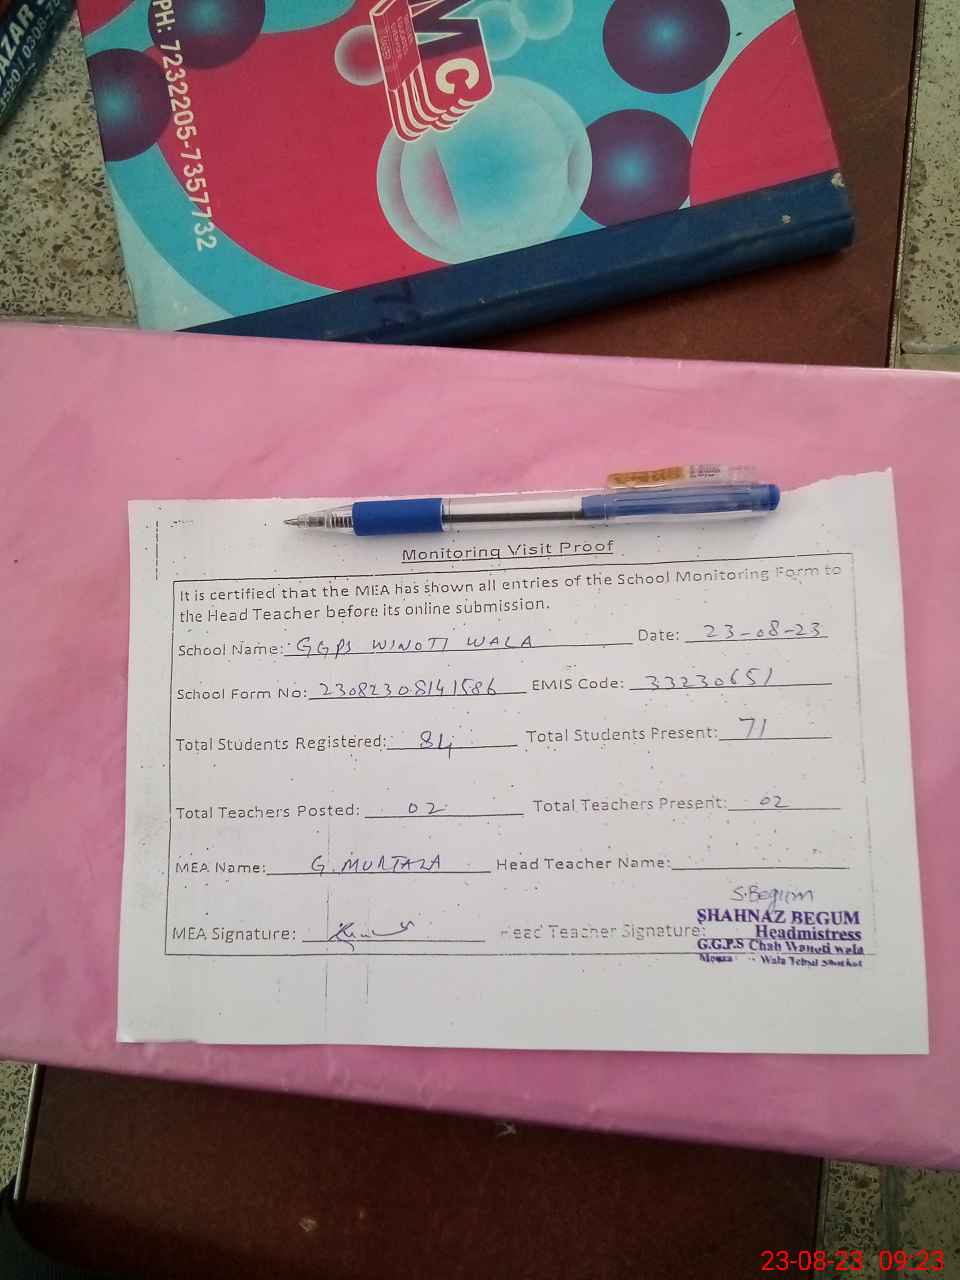 BAZAR
PH: 7232205-7357732
MC
Monitoring Visit Proof
It is certified that the MEA has shown all entries of the School Monitoring Form to
the Head Teacher before its online submission.
School Name: GGPS WINOTI WALA Date: 23-08-23
School Form No: 23082308141586 EMIS Code: 33230651
Total Students Registered: 84 Total Students Present: 71
Total Teachers Posted: 02 Total Teachers Present: 02
MEA Name: G. MURTAZA Head Teacher Name:
S.Begum
SHAHNAZ BEGUM
MEA Signature: Head Teacher Signature:
Headmistress
G.G.P.S Chah Wanoti wala
Wala Tehsil
23-08-23 09:23